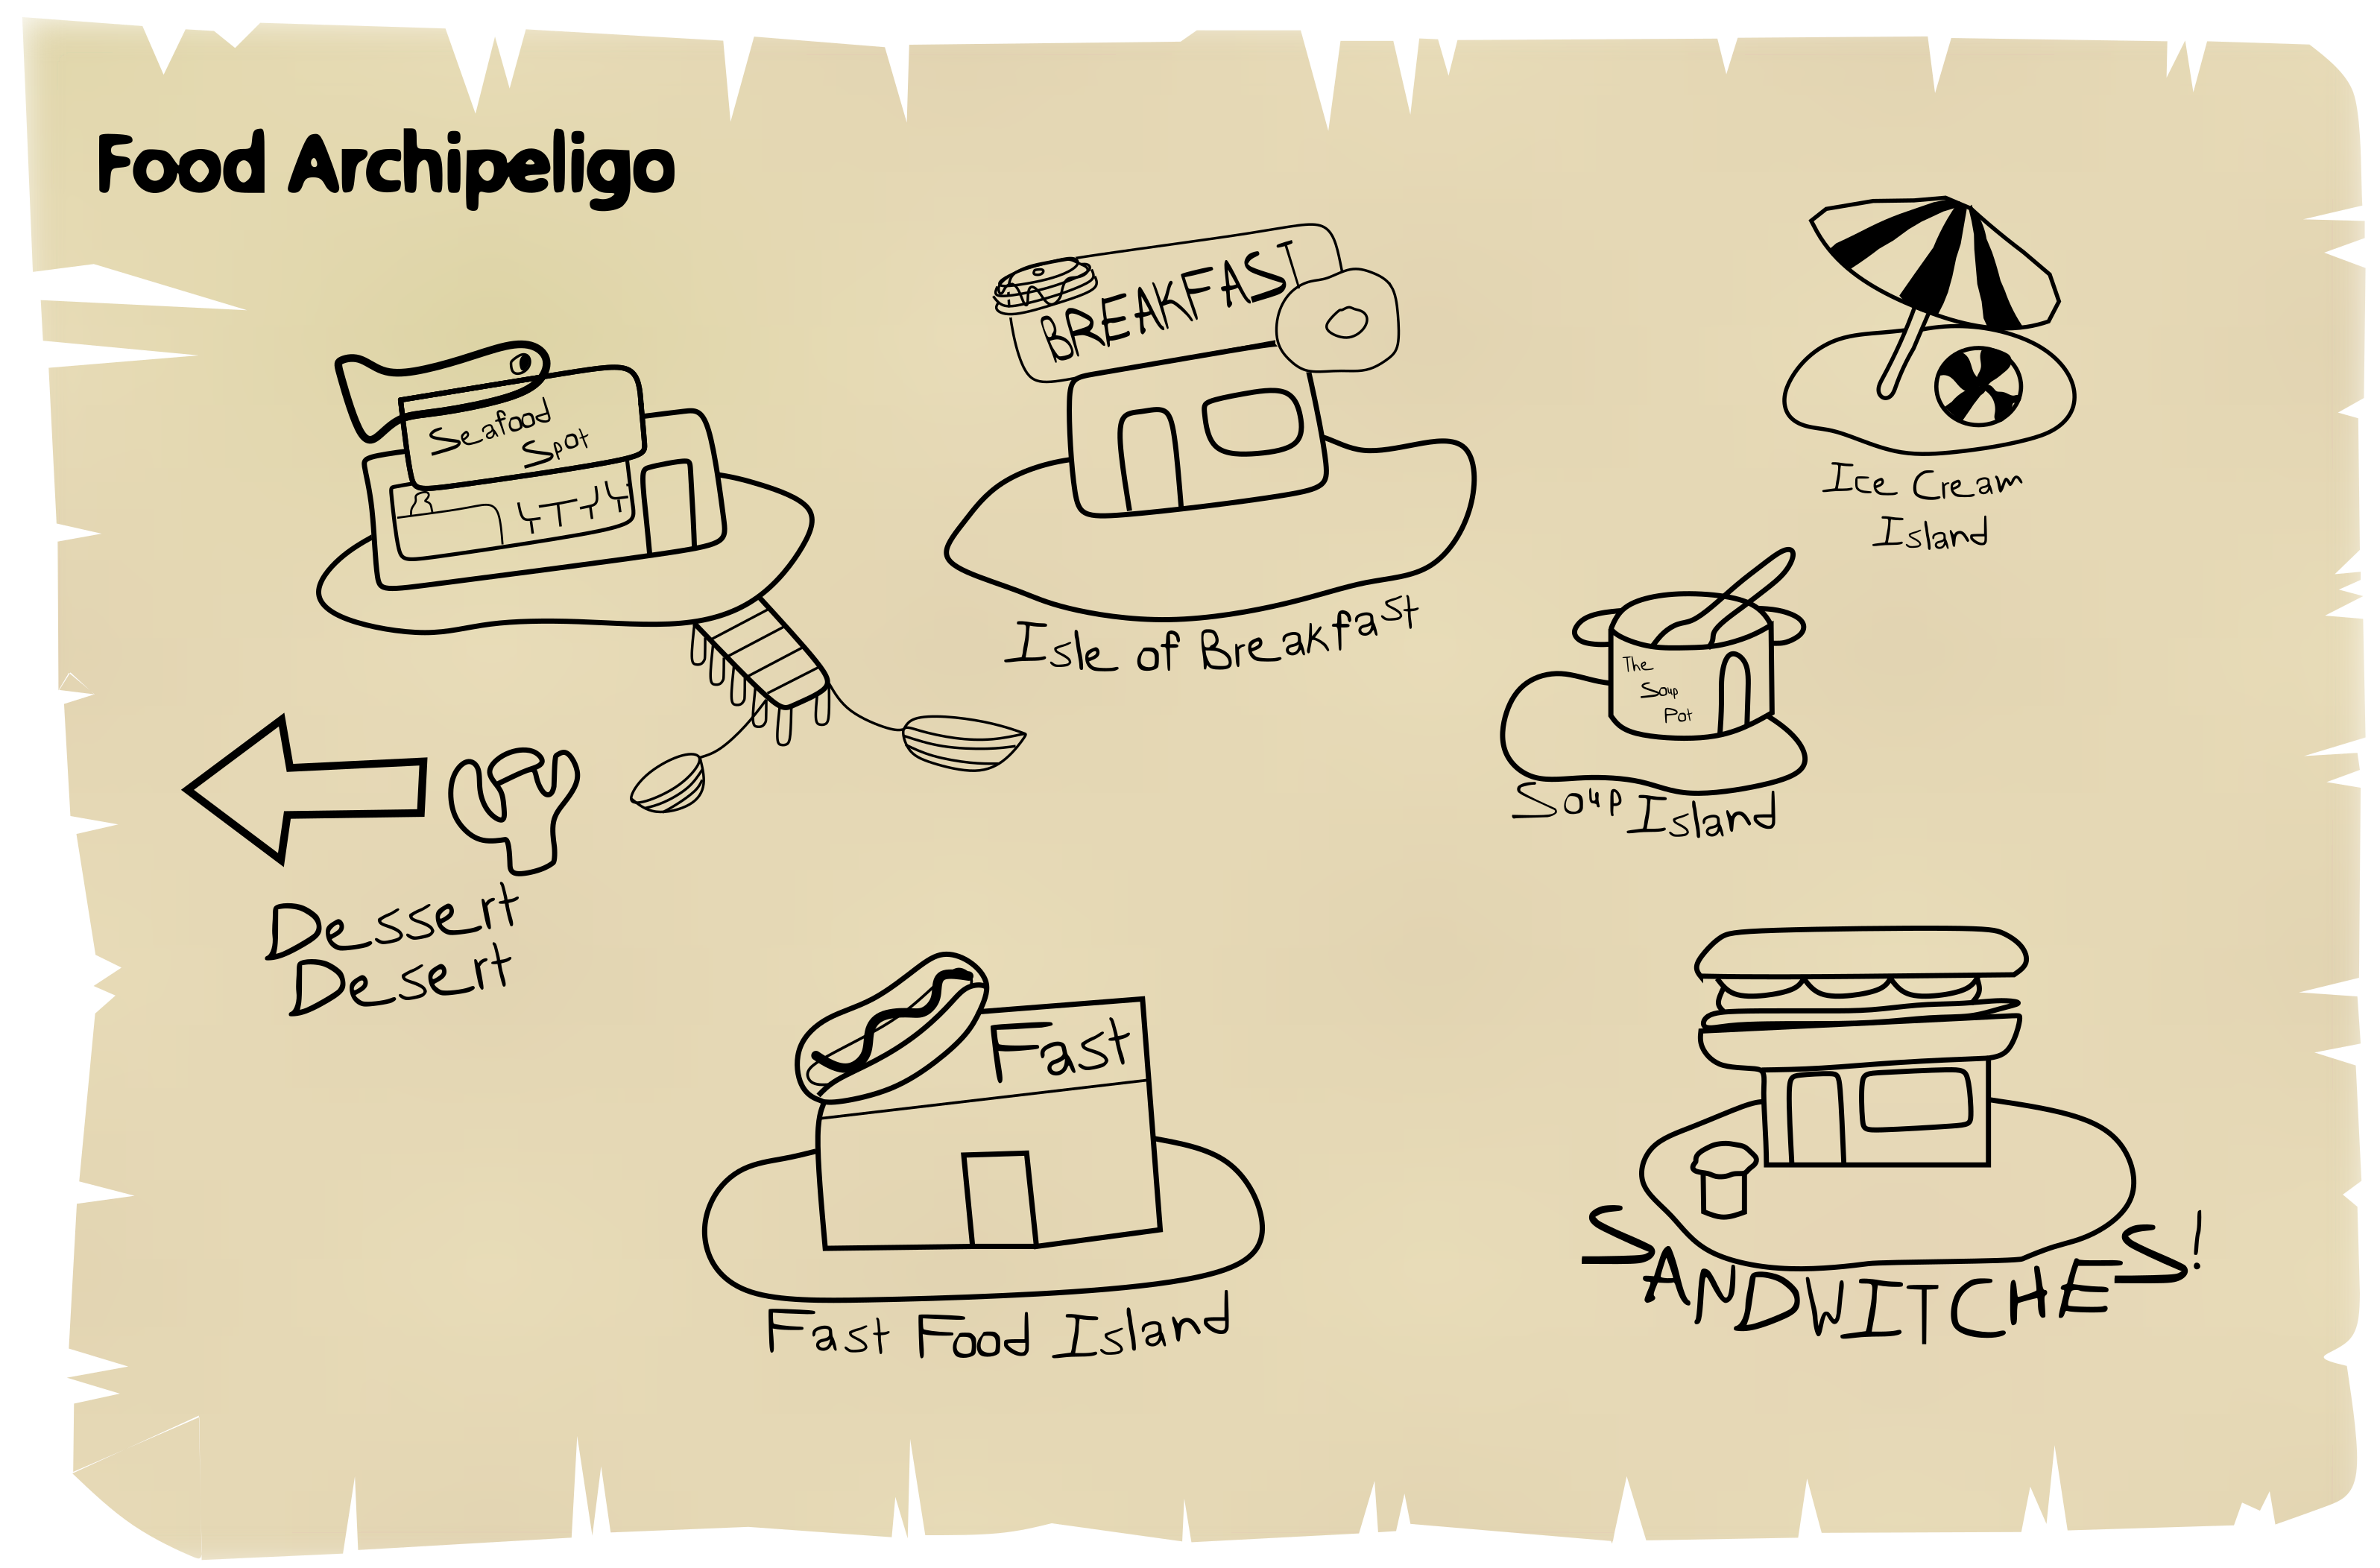 Food Archipeligo
Seafood
Spot
BREAKFAST
Isle of Breakfast
Ice Cream
Island
The
Soup
Pot
Soup Island
Dessert
Desert
Fast
Fast Food Island
SANDWITCHES!